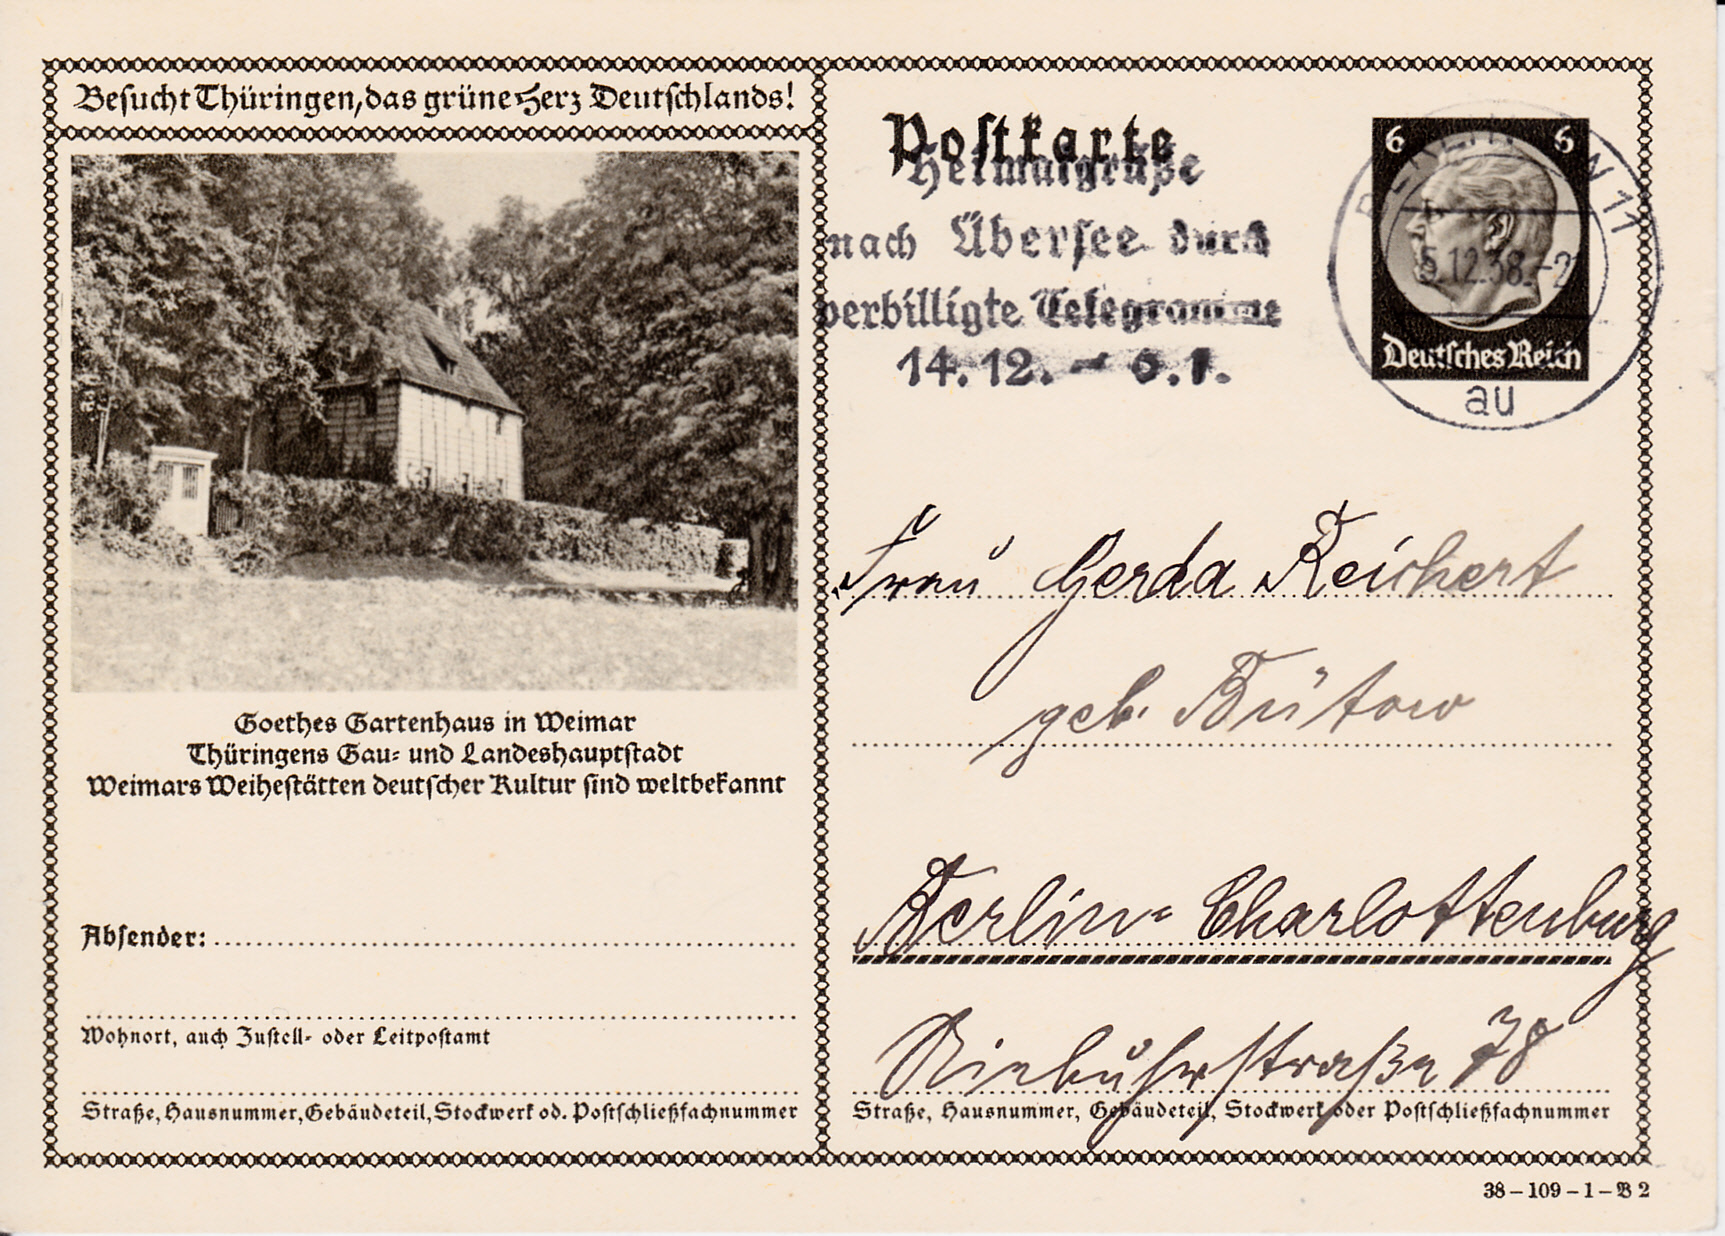 Besucht Thüringen, das grüne Herz Deutschlands!
Goethes Gartenhaus in Weimar
Thüringens Gau- und Landeshauptstadt
Weimars Weihestätten deutscher Kultur sind weltbekannt
Absender:
Wohnort, auch Zustell- oder Leitpostamt
Straße, Hausnummer, Gebäudeteil, Stockwerk od. Postschließfachnummer
Postkarte
Heimatgrüße
nach Übersee durch
verbilligte Telegramme
14.12. – 6.1.
6 6
BERLIN SW 11
5.12.38.-2
Deutsches Reich
au
Frau Gerda Reichert
geb. Bütow
Berlin-Charlottenburg
Niebuhrstraße 78
Straße, Hausnummer, Gebäudeteil, Stockwerk oder Postschließfachnummer
38 – 109 – 1 – B 2